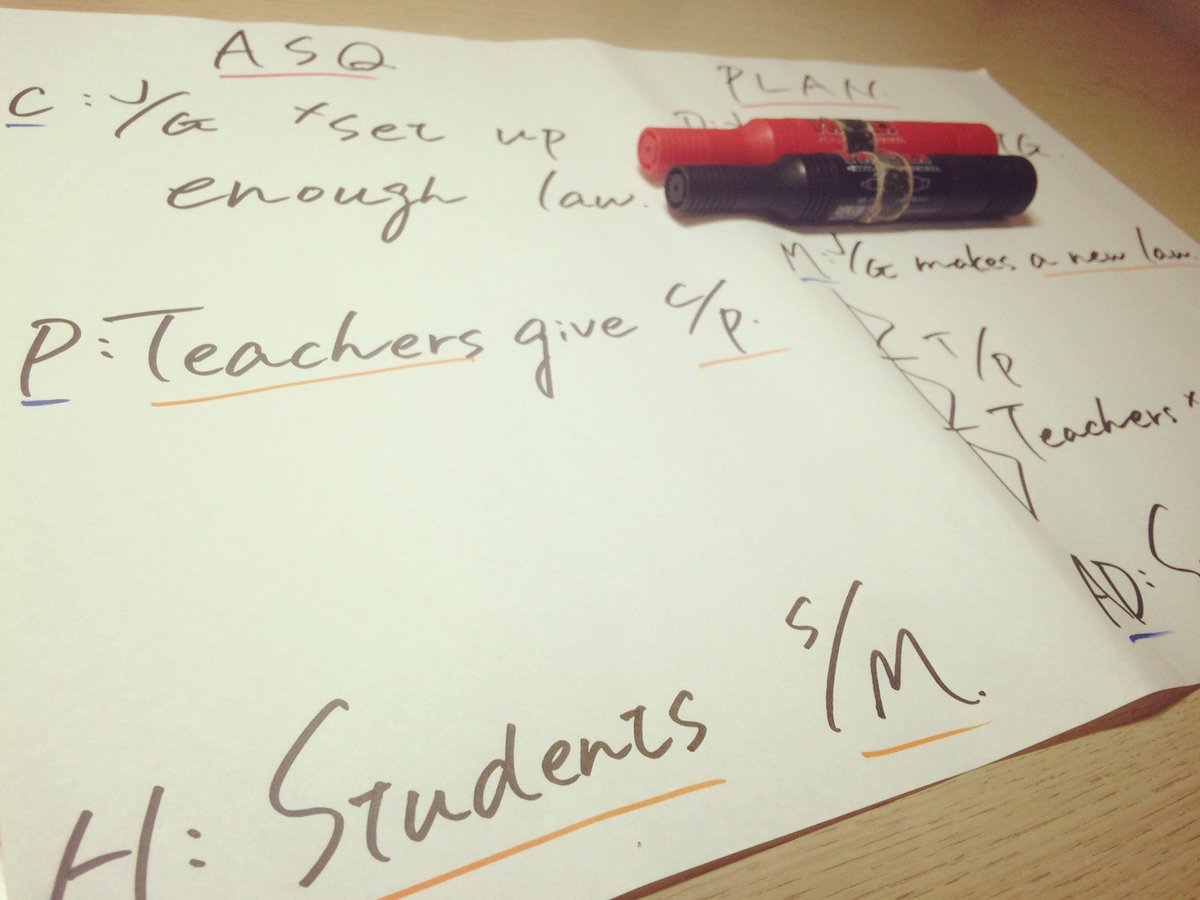 ASQ
C: J/G ×set up
enough law.
P: Teachers give C/P.
H: Students S/M.
PLAN.
M: J/G makes a new law.
T/P
Teachers ×
AD: S